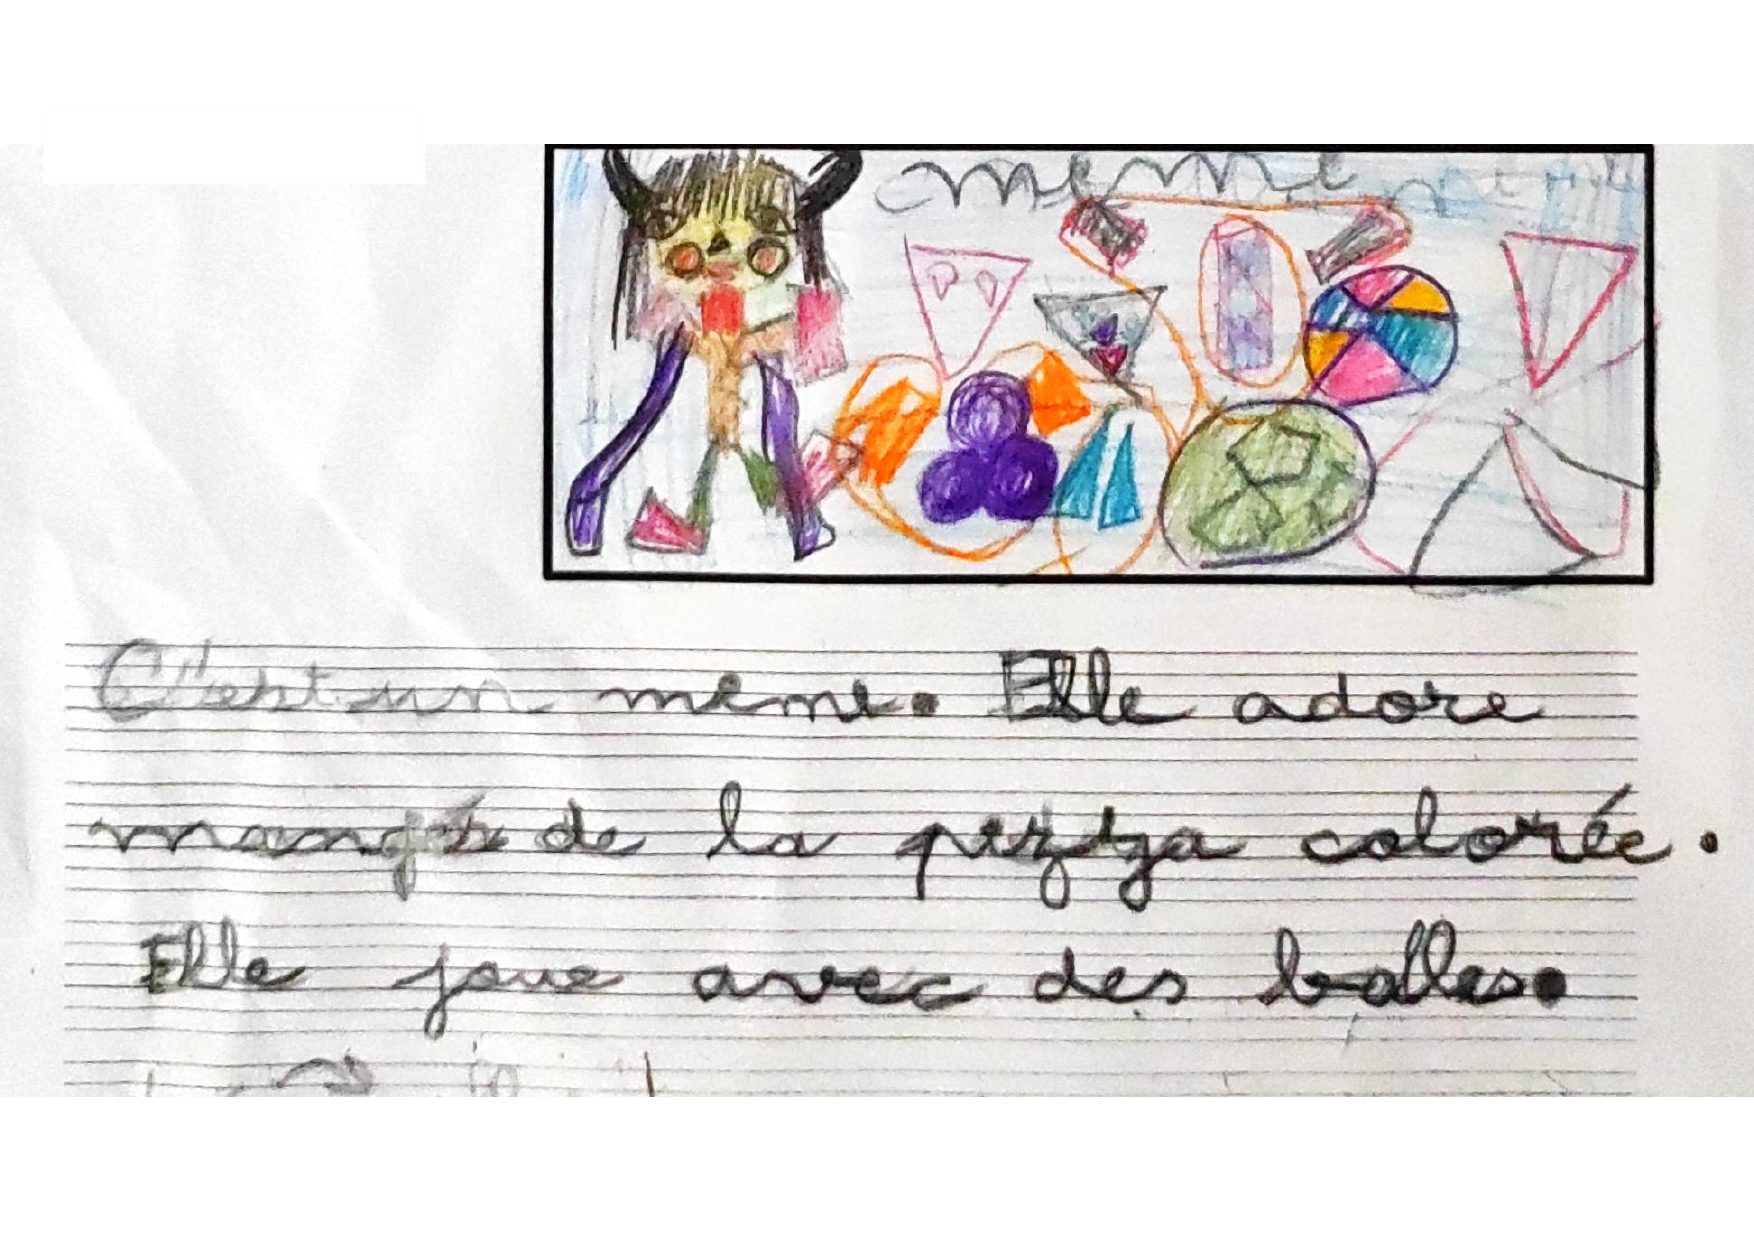 meme
C'est un meme. Elle adore
mangér de la pizza colorée.
Elle joue avec des balles.